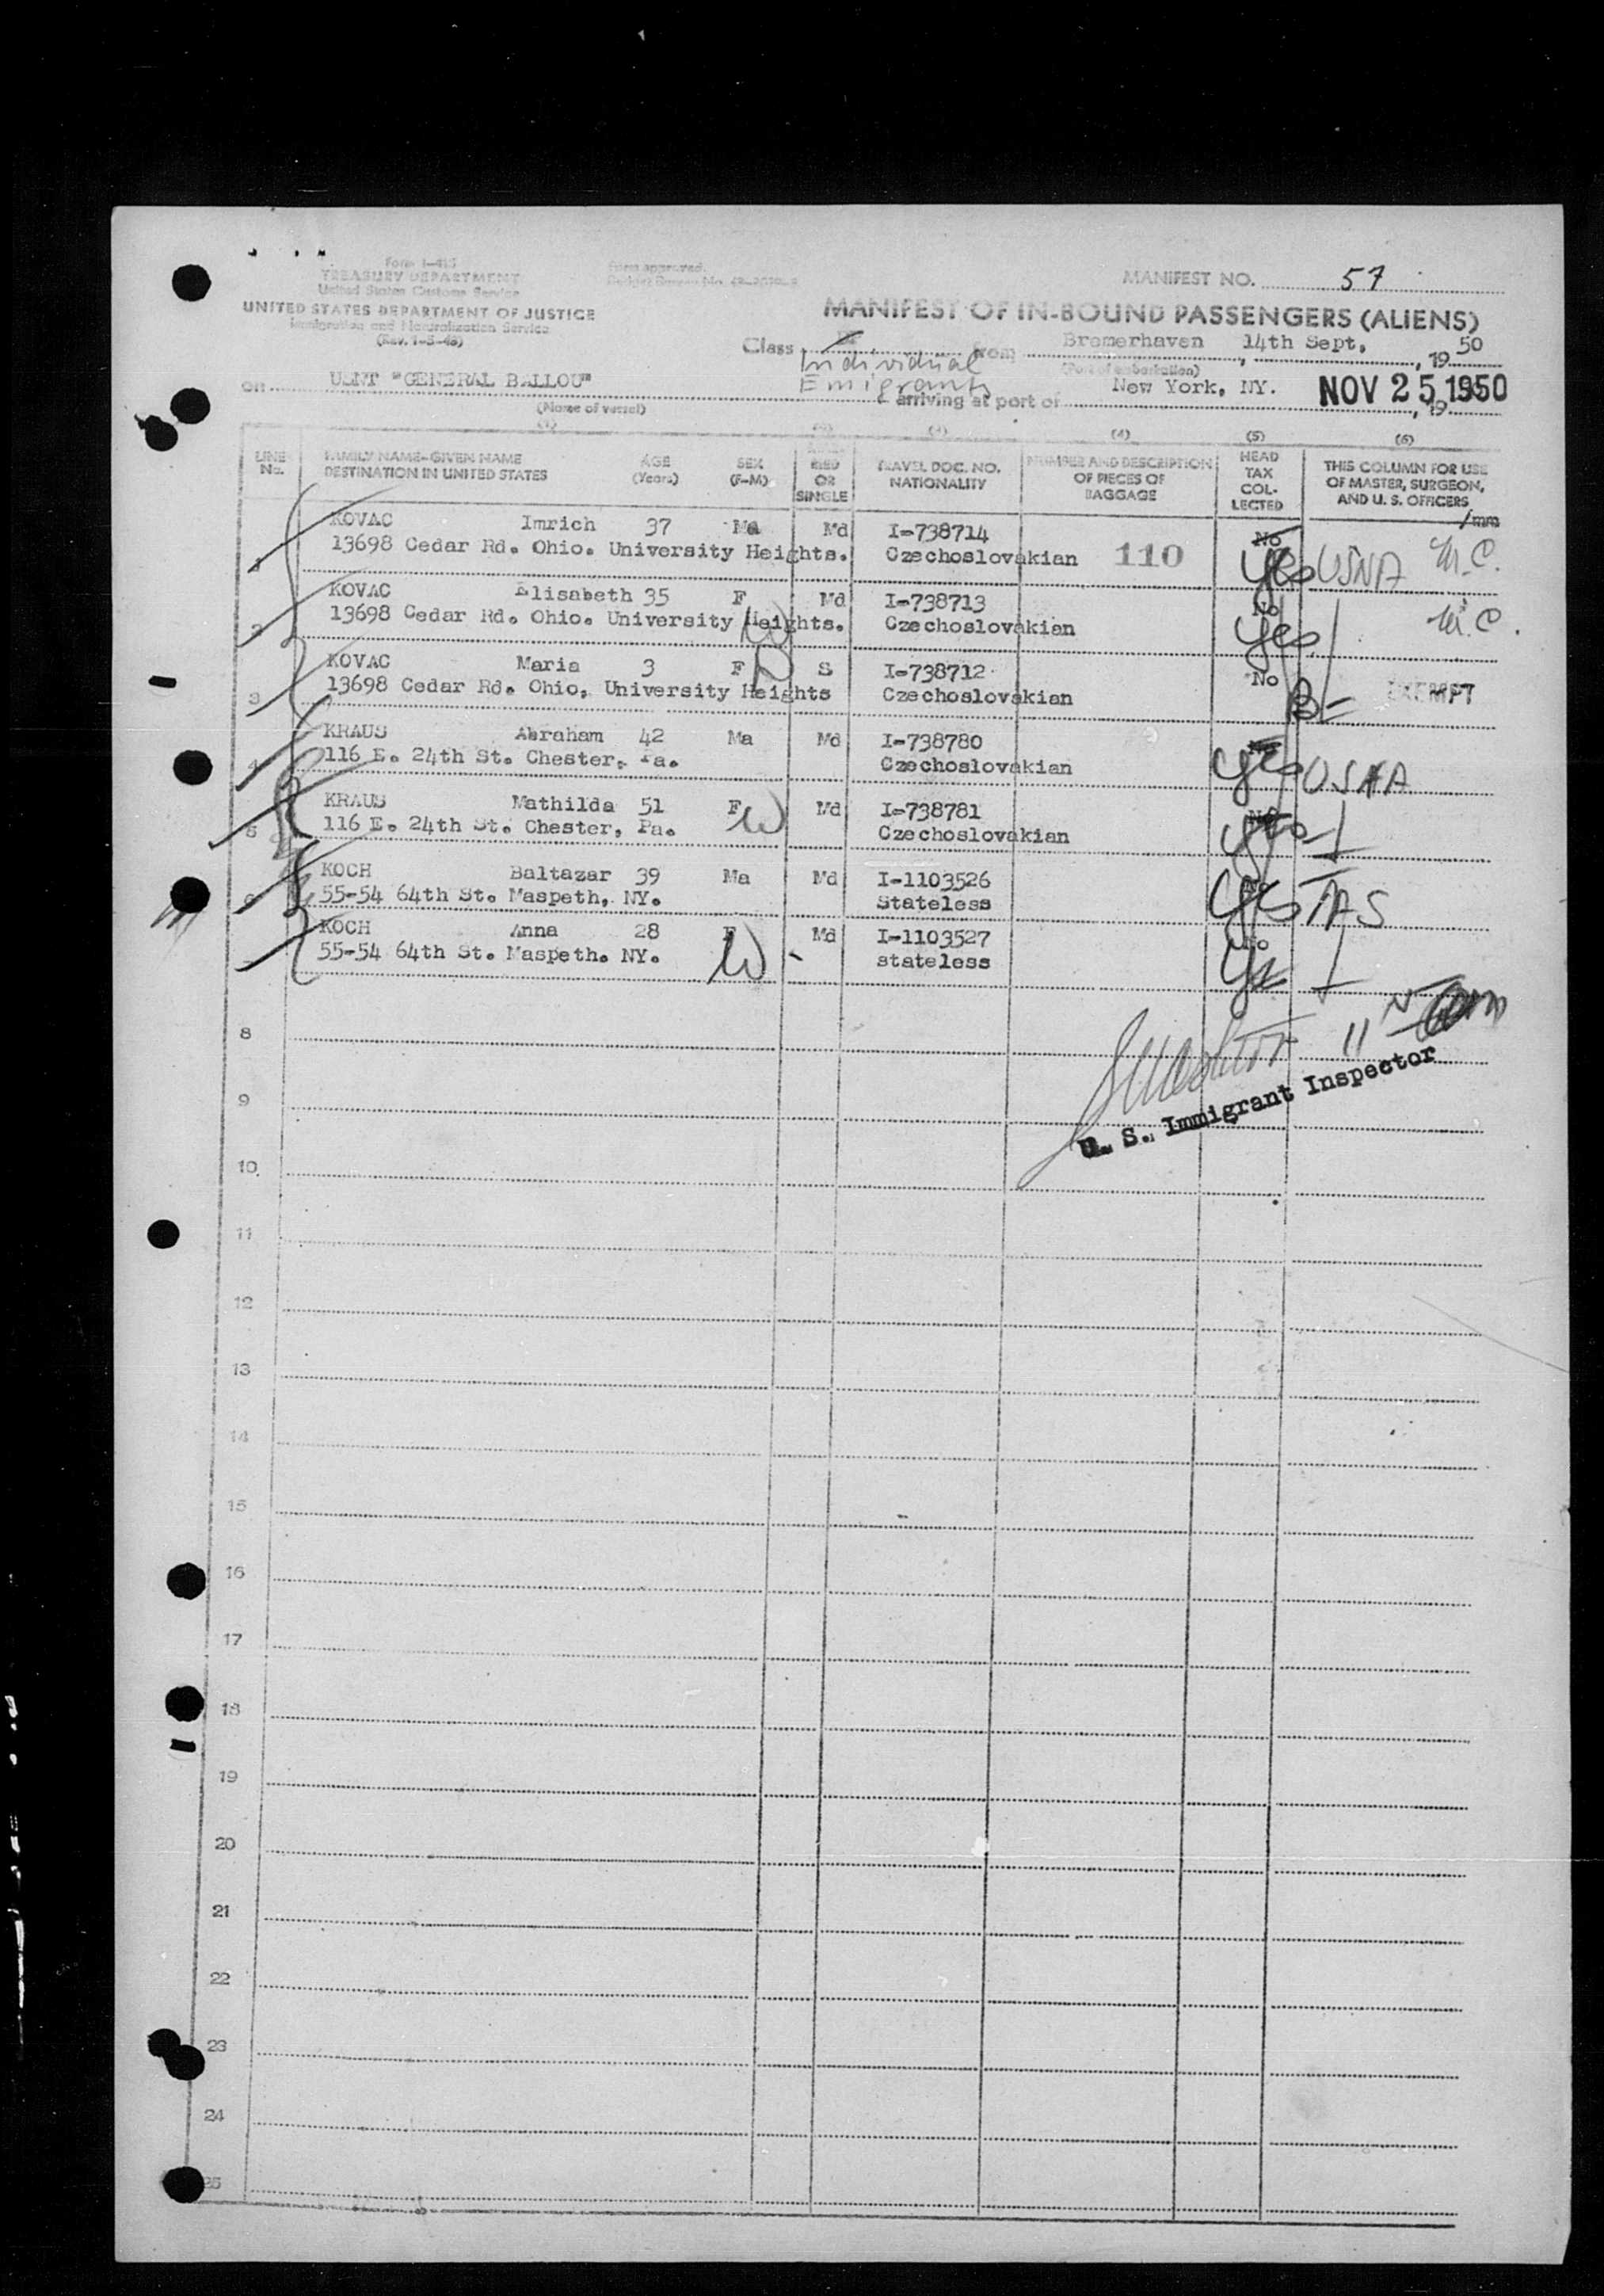 Form I-415
TREASURY DEPARTMENT
United States Customs Service
UNITED STATES DEPARTMENT OF JUSTICE
Immigration and Naturalization Service
(Rev. 1-3-48)
Form approved.
MANIFEST NO. 57
MANIFEST OF IN-BOUND PASSENGERS (ALIENS)
Class Individual Emigrants from Bremerhaven 14th Sept, , 19 50
(Port of embarkation)
on USNT "GENERAL BALLOU" arriving at port of New York, NY. NOV 25 1950 , 19
(Name of vessel)
(1) (2) (3) (4) (5) (6)
LINE No. FAMILY NAME-GIVEN NAME DESTINATION IN UNITED STATES AGE (Years) SEX (F-M) MARRIED OR SINGLE TRAVEL DOC. NO. NATIONALITY NUMBER AND DESCRIPTION OF PIECES OF BAGGAGE HEAD TAX COLLECTED THIS COLUMN FOR USE OF MASTER, SURGEON, AND U. S. OFFICERS
/mm
KOVAC Imrich 37 Ma Md I-738714 No
1 13698 Cedar Rd. Ohio. University Heights. Czechoslovakian 110 yes USNA M.C.
KOVAC Elisabeth 35 F Md I-738713 No
2 13698 Cedar Rd. Ohio. University Heights. W Czechoslovakian yes M.C.
KOVAC Maria 3 F S I-738712 No
3 13698 Cedar Rd. Ohio, University Heights Czechoslovakian EXEMPT
KRAUS Abraham 42 Ma Md I-738780 No
4 116 E. 24th St. Chester, Pa. Czechoslovakian yes USNA
KRAUS Mathilda 51 F W Md I-738781 No
5 116 E. 24th St. Chester, Pa. Czechoslovakian yes
KOCH Baltazar 39 Ma Md I-1103526
6 55-54 64th St. Maspeth, NY. Stateless yes TAS
KOCH Anna 28 F Md I-1103527 No
55-54 64th St. Maspeth. NY. W stateless yes
U. S. Immigrant Inspector
8
9
10
11
12
13
14
15
16
17
18
19
20
21
22
23
24
25